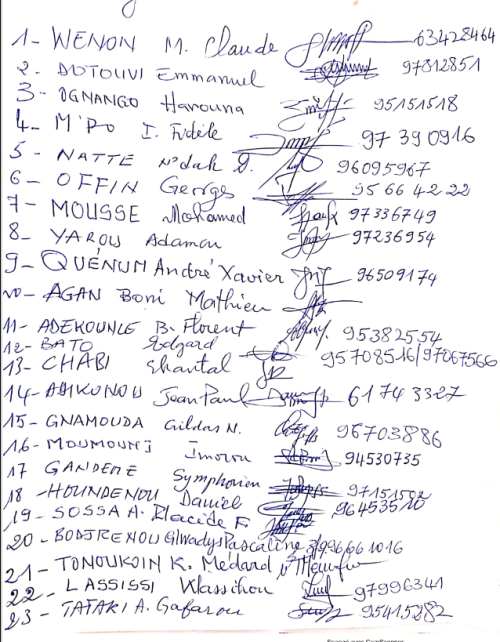 1- WENON M. Claude 63428464
2- DOTOUVI Emmanuel 97812851
3- OGNANGO Harouna 95151518
4- M'PO I. Fidèle 97 390916
5- NATTE N'dah D. 96095967
6- OFFIN Georges 95 66 42 22
7- MOUSSE Mohamed 97336749
8- YAROU Adamou 97236954
9- QUENUM André Xavier 96509174
10- AGAN Boni Mathieu
11- ADEKOUNLE B. Florent 95382554
12- BATO Edgard 95708516/97067566
13- CHABI Chantal
14- Jean Paul 61743327
15- GNAMOUDA Gildas N. 96703886
16- MOUMOUNI Imorou 94530735
17 GANDEME Symphorien
18- HOUNDENOU Daniel 97151502
19- SOSSA A. Placide F. 96453510
20- Gilwadys Pascaline 96661016
21- TONOUKOIN K. Médard
22- LASSISSI Wassihou 97996341
23- TATAKI A. Gafarou 95415282